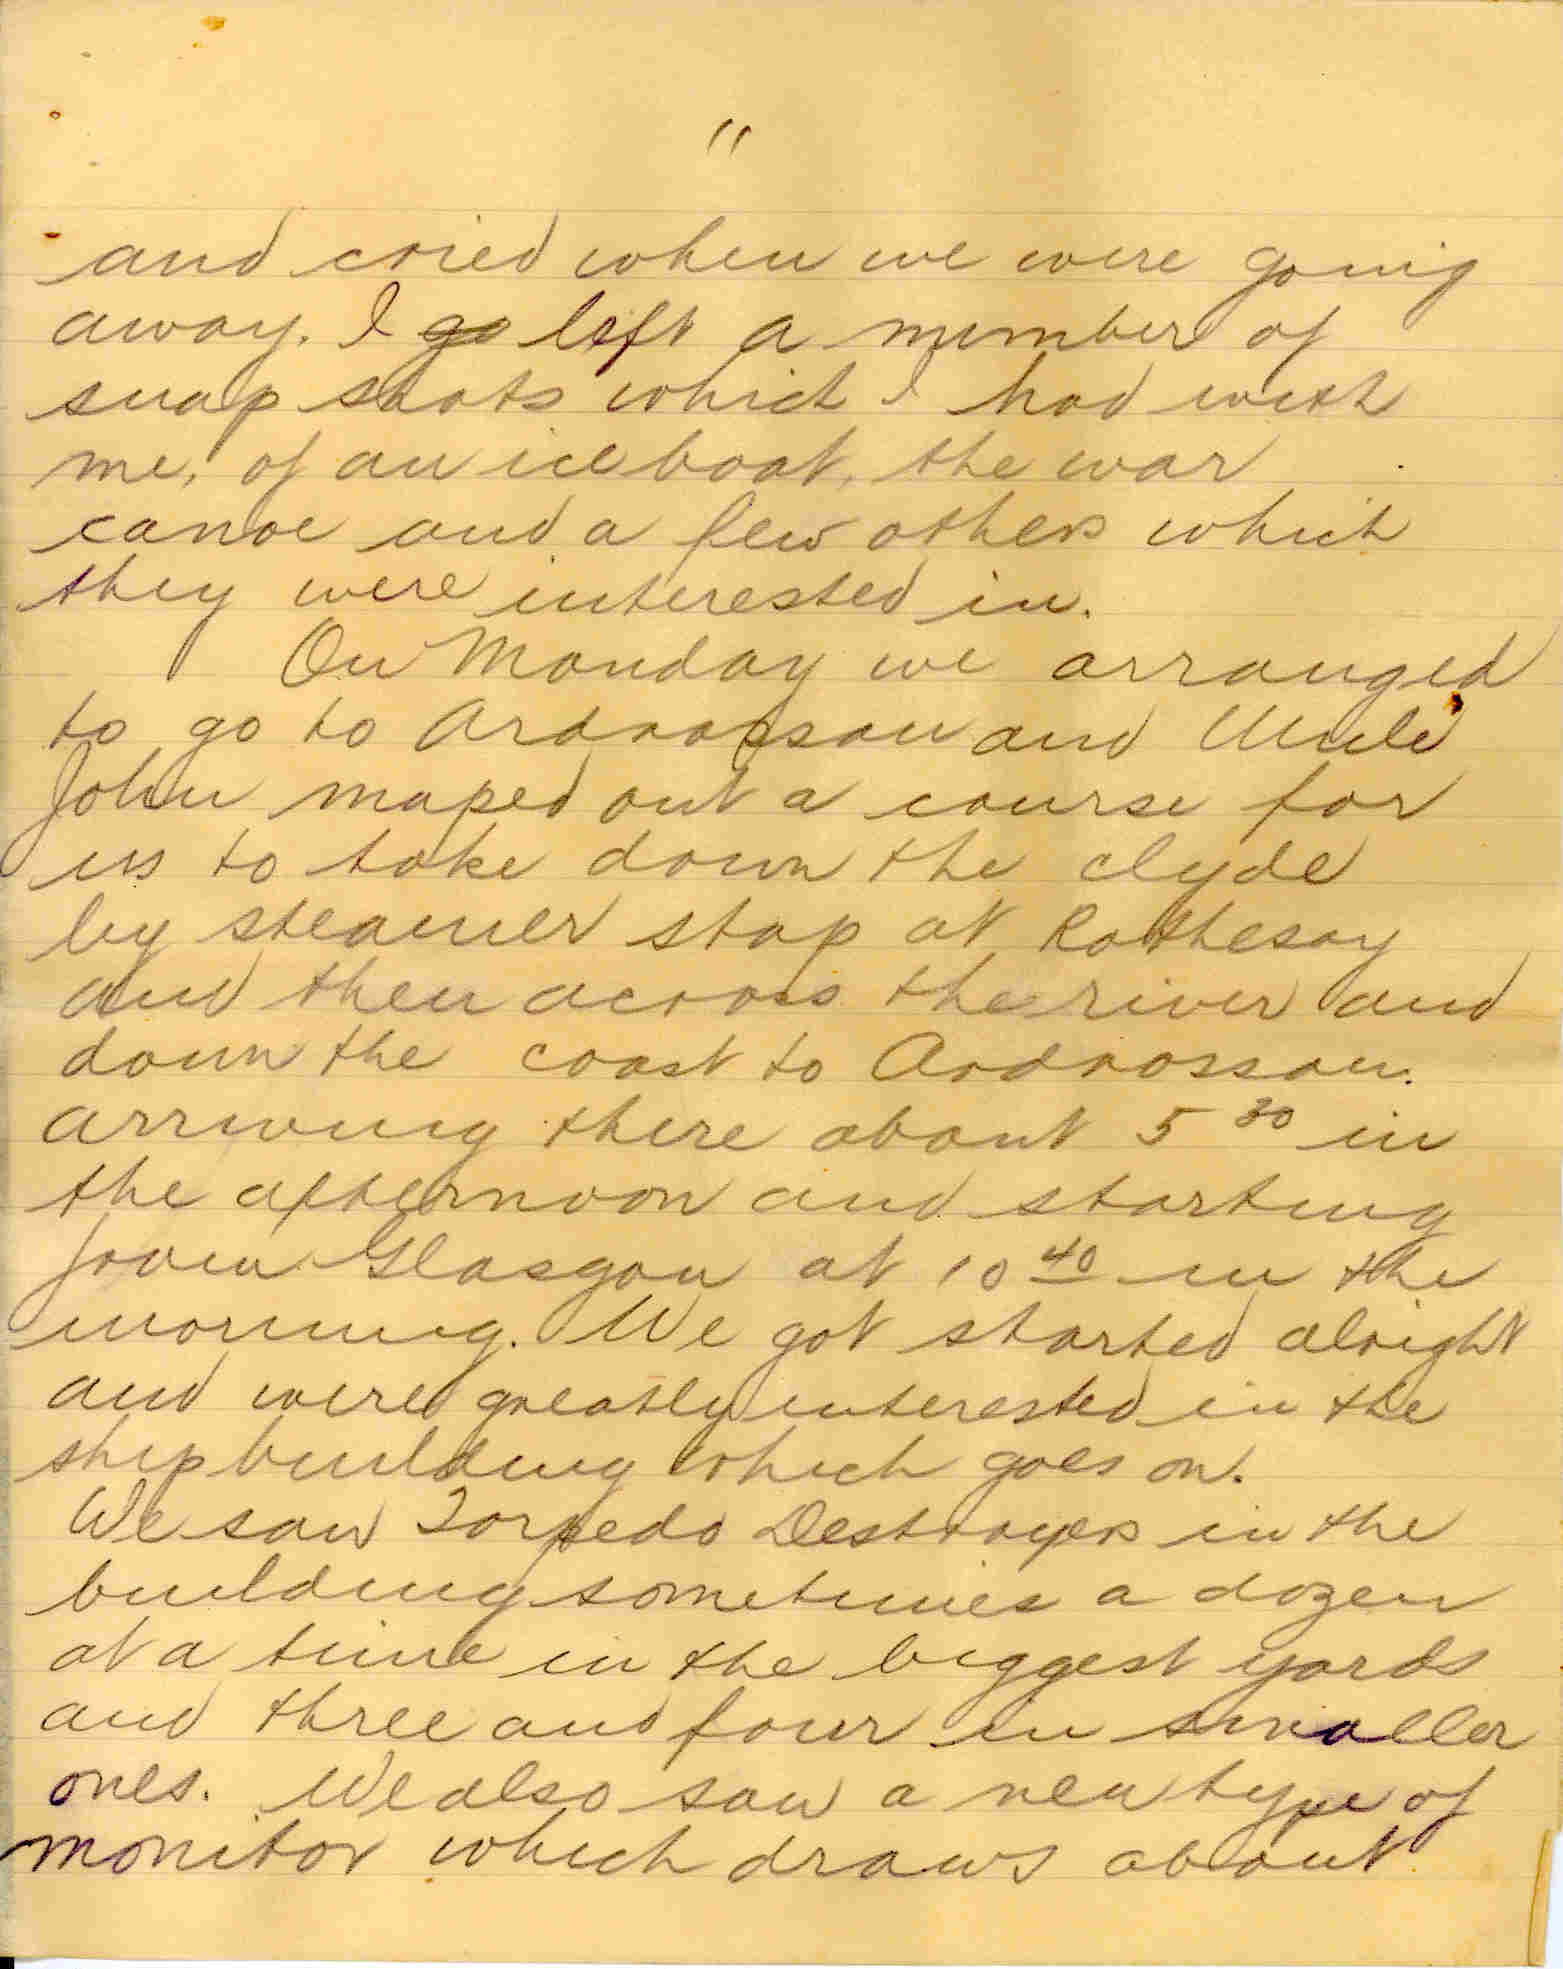 11
and cried when we were going
away. I go left a number of
snap shots which I had with
me, of an ice boat, the war
canoe and a few others which
they were interested in.
On Monday we arranged
to go to Ardrossan and Uncle
John maped out a course for
us to take down the Clyde
by steamer stop at Rothesay
and then across the river and
down the coast to Ardrossan.
arriving there about 5 30 in
the afternoon and starting
from Glasgow at 10 40 in the
morning. We got started alright
and were greatly interested in the
ship building which goes on.
We saw Torpedo Destroyers in the
building sometimes a dozen
at a time in the biggest yards
and three and four in smaller
ones. We also saw a new type of
monitor which draws about